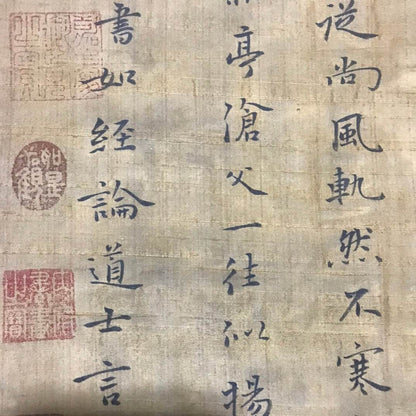 從尚風軌然不寒
亭滄父一往似揚
書如經論道士言
如是